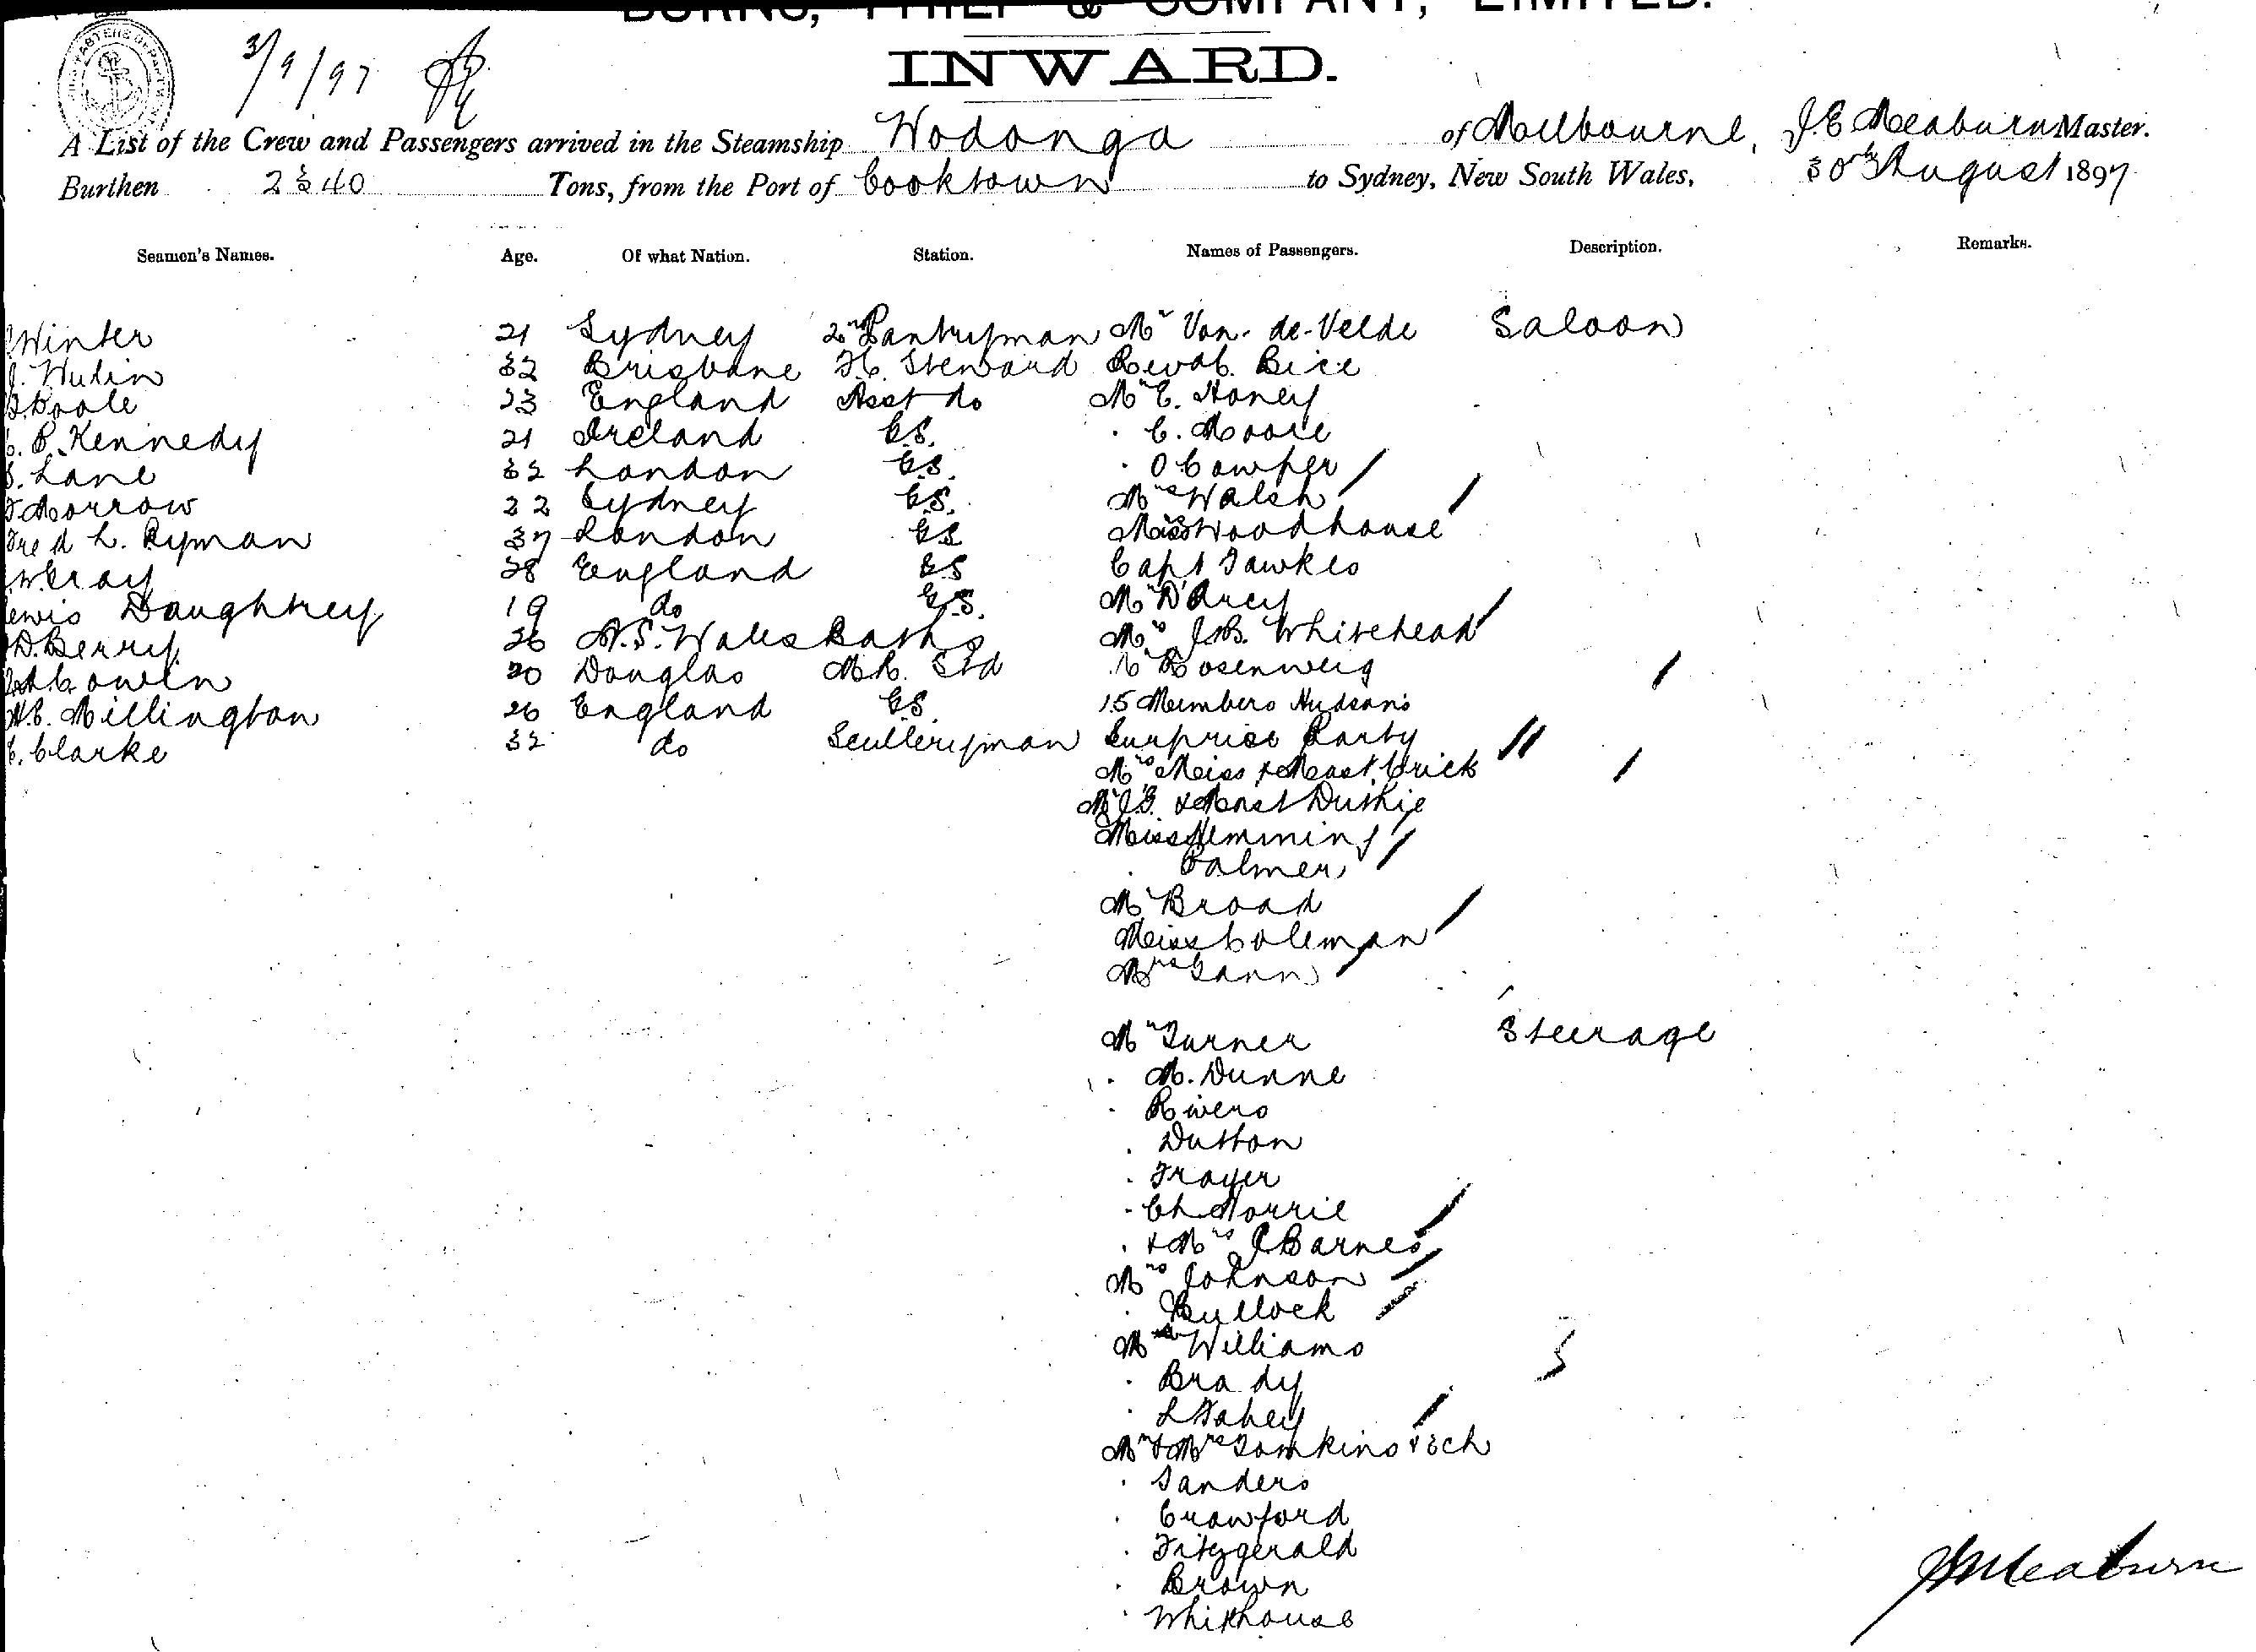 BURNS, PHILP & COMPANY, LIMITED.
INWARD.
3/9/97
A List of the Crew and Passengers arrived in the Steamship Wodonga of Melbourne, J. C. Meaburn Master.
Burthen 2340 Tons, from the Port of Cooktown to Sydney, New South Wales, 30th August 1897
Seamen's Names. Age. Of what Nation. Station. Names of Passengers. Description. Remarks.
Winter 21 Sydney 2nd Pantryman Mr Van-de-Velde Saloon
32 Brisbane F.C. Steward Revd C. Bice
Poole 23 England Asst do Mr E. Honey
P. Kennedy 21 Ireland G.S. . C. Moore
S. Lane 32 London G.S. . O Cowper
Morrow 22 Sydney G.S. Mrs Walsh
Fred L. Ryman 37 London G.S. Miss Woodhouse
W. Gray 28 England G.S Capt Fawkes
ewis Daughtrey 19 do G.S. Mr D'Arcy
D. Berry 26 N.S. Wales Baths Mrs J.B. Whitehead
Cowin 20 Douglas M.R. Std Mr Rosenweig
H.C. Millington 26 England G.S. 15 Members Hudson's
C. Clarke 32 do Sculleryman Surprise Party
Mrs Miss & Mast Crick
Mr J.G. & Mast Duthie
Miss Flemming
. Palmer
Mr Broad
Miss Coleman
Mrs Gann
Mr Turner Steerage
. M. Dunne
. Rivers
. Dutton
. Frayer
. Ch Norrie
. & Mrs J Barnes
Mrs Johnson
. Bullock
Mr Williams
. Brady
. L Fahey
Mr & Mrs Tomkins & 2ch
. Sanders
. Crawford
. Fitzgerald
. Brown
. Whithouse
J Meaburn